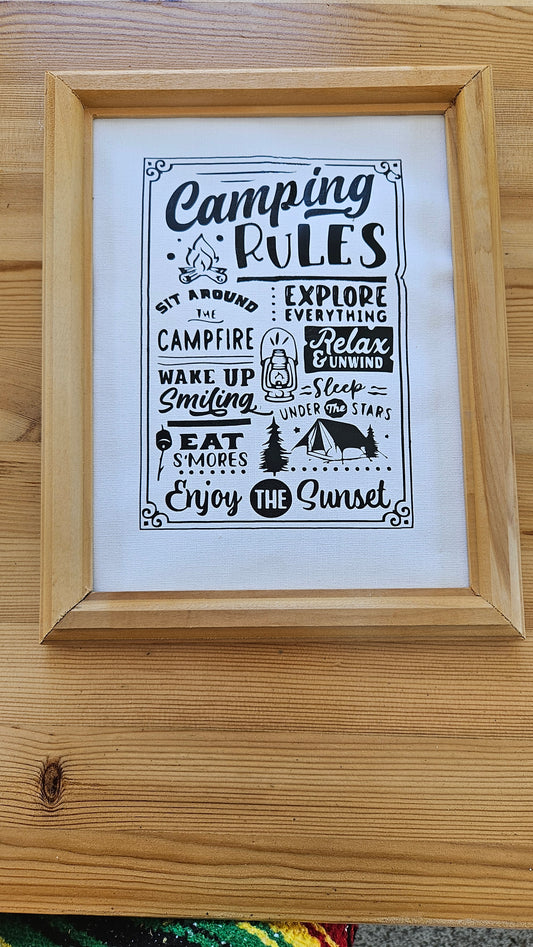 Camping
RULES
SIT AROUND
THE
CAMPFIRE
EXPLORE
EVERYTHING
Relax
& UNWIND
WAKE UP
Smiling
Sleep
UNDER The STARS
EAT
S'MORES
Enjoy THE Sunset